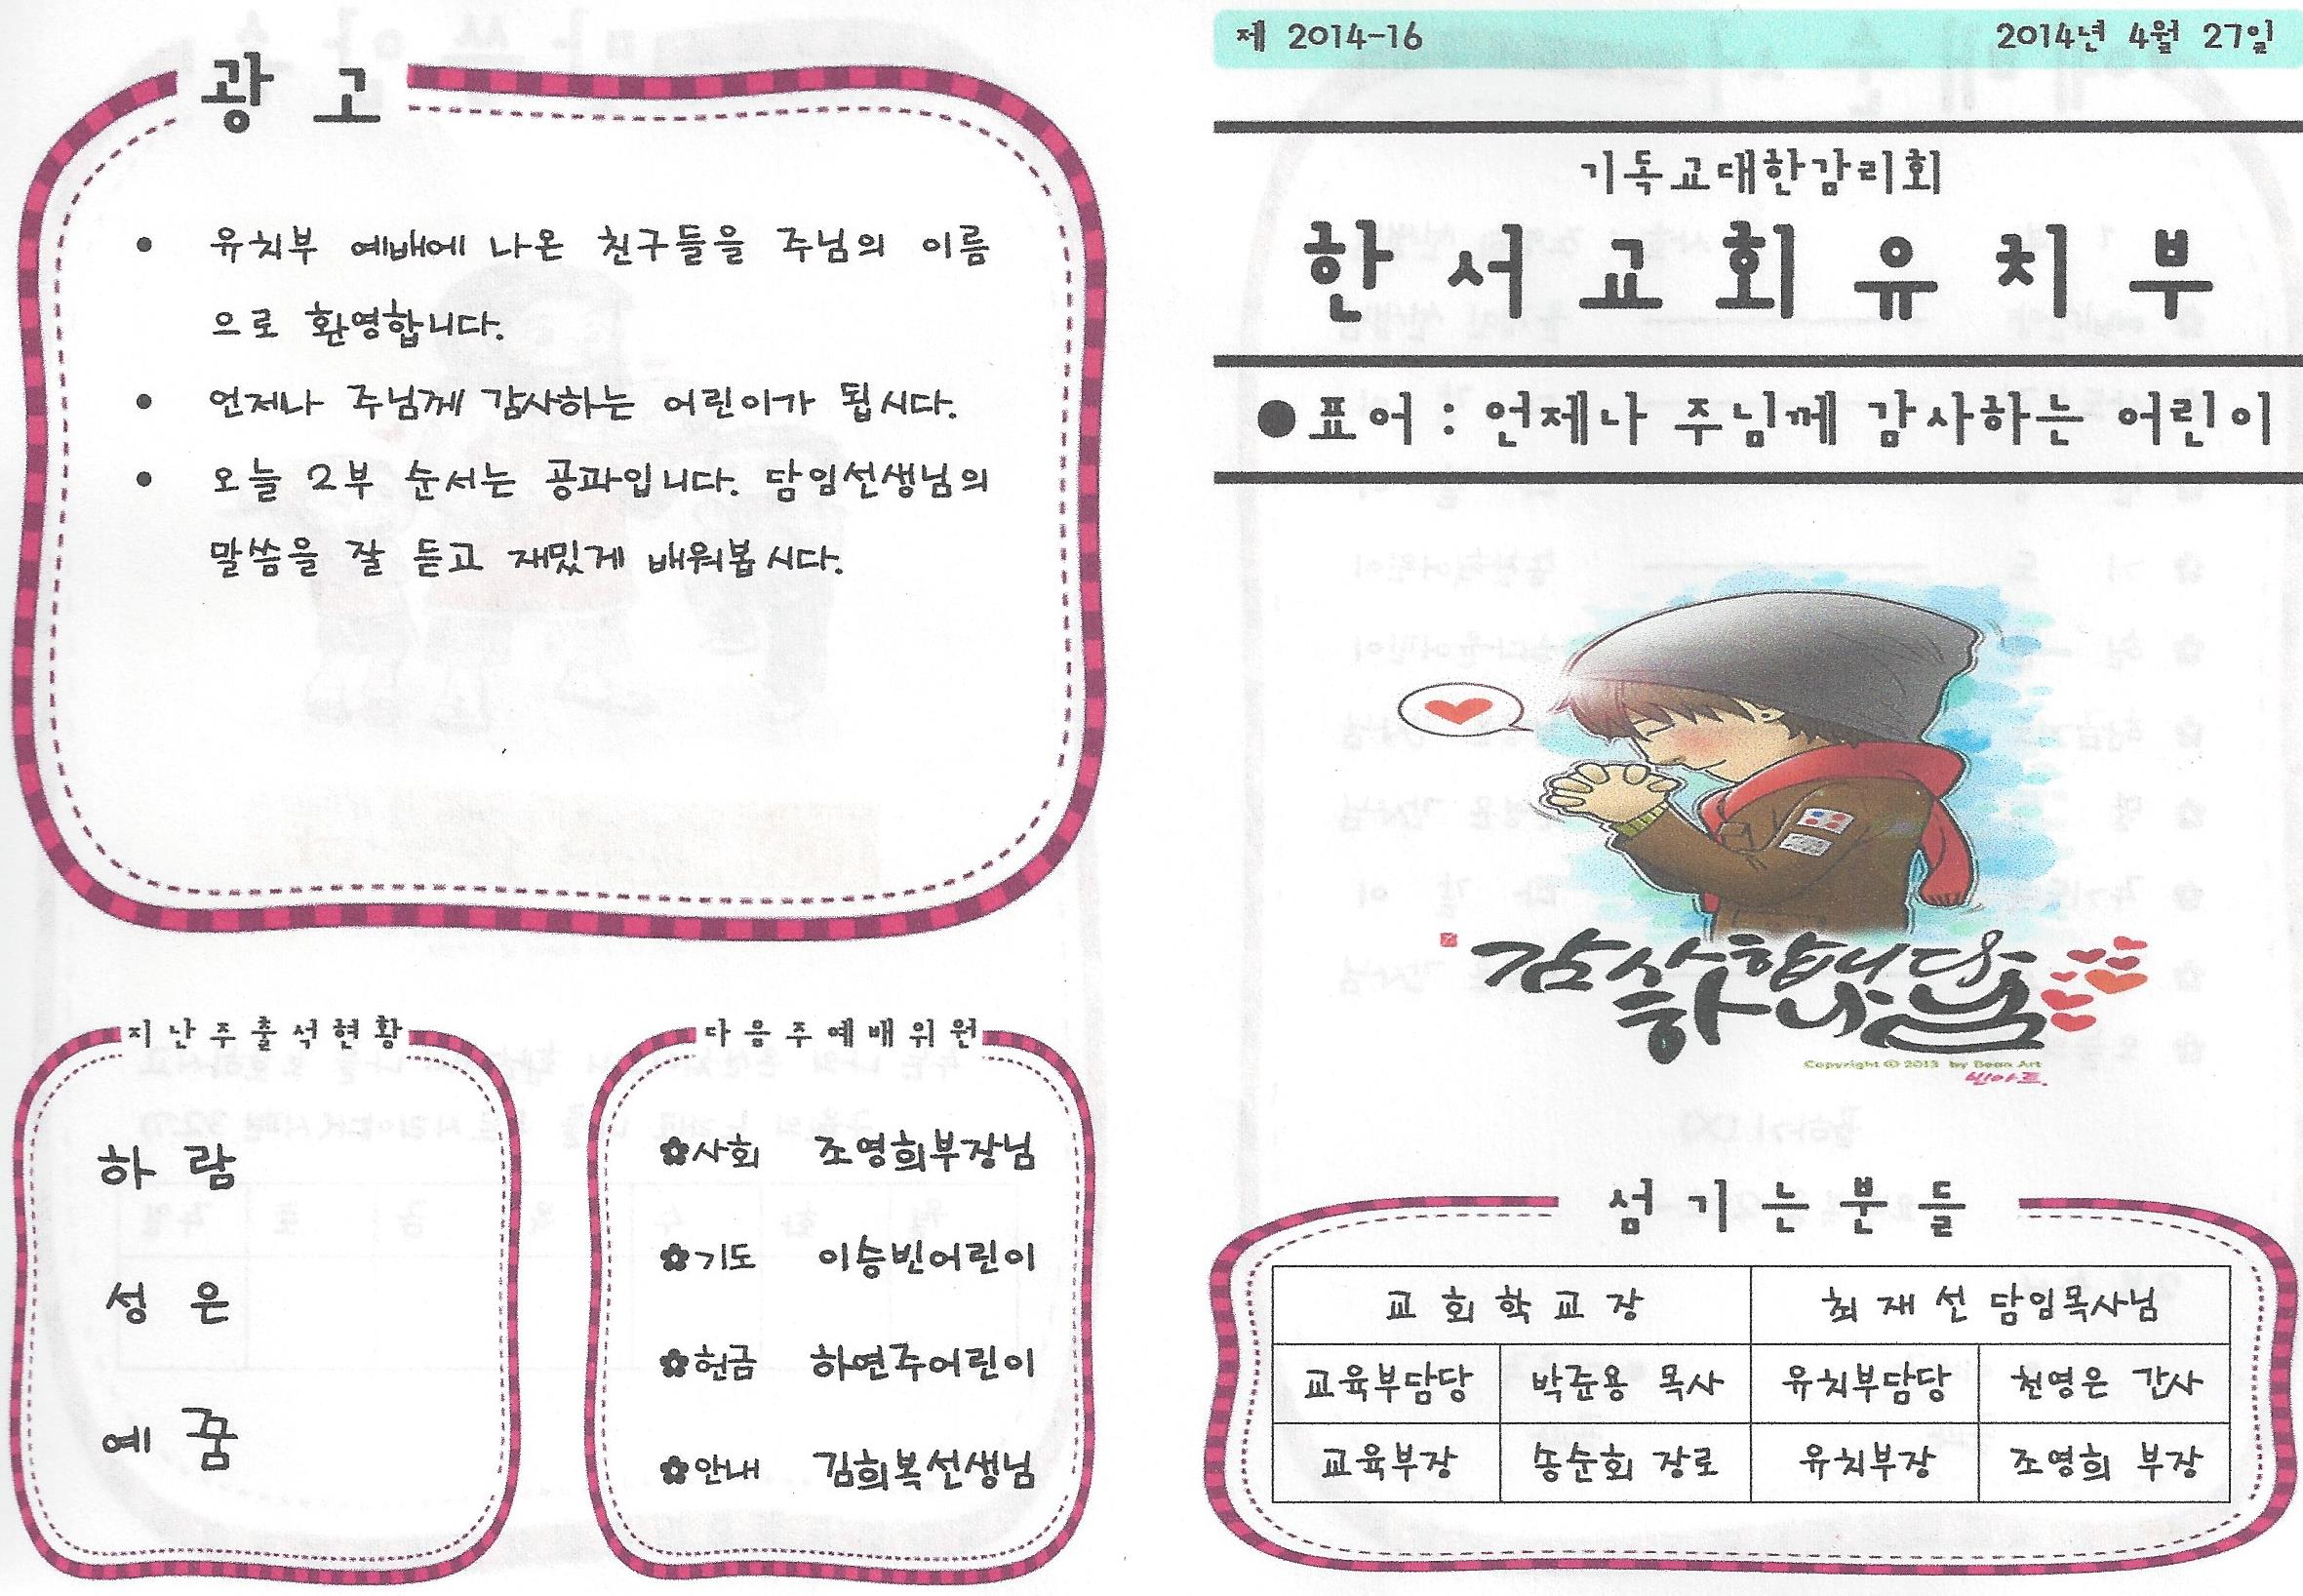 광 고
• 유치부 예배에 나온 친구들을 주님의 이름
으로 환영합니다.
• 언제나 주님께 감사하는 어린이가 됩시다.
• 오늘 2부 순서는 공과입니다. 담임선생님의
말씀을 잘 듣고 재밌게 배워봅시다.
지난주출석현황
하 람
성 은
예 꿈
다음주예배위원
✿사회 조영희부장님
✿기도 이승빈어린이
✿헌금 하연주어린이
✿안내 김희복선생님
제 2014-16 2014년 4월 27일
기독교대한감리회
한서교회유치부
●표어 : 언제나 주님께 감사하는 어린이
감사합니다
하나님
Copyright © 2013 by Bean Art
빈아트
섬기는분들
교회학교장 최재선담임목사님
교육부담당 박준용 목사 유치부담당 천영은 간사
교육부장 송순회 장로 유치부장 조영희 부장